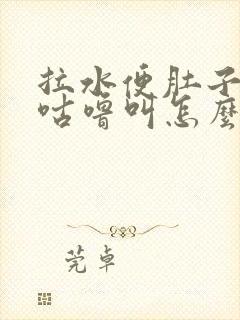 拉水便肚子
咕噜叫怎麼
莞卓